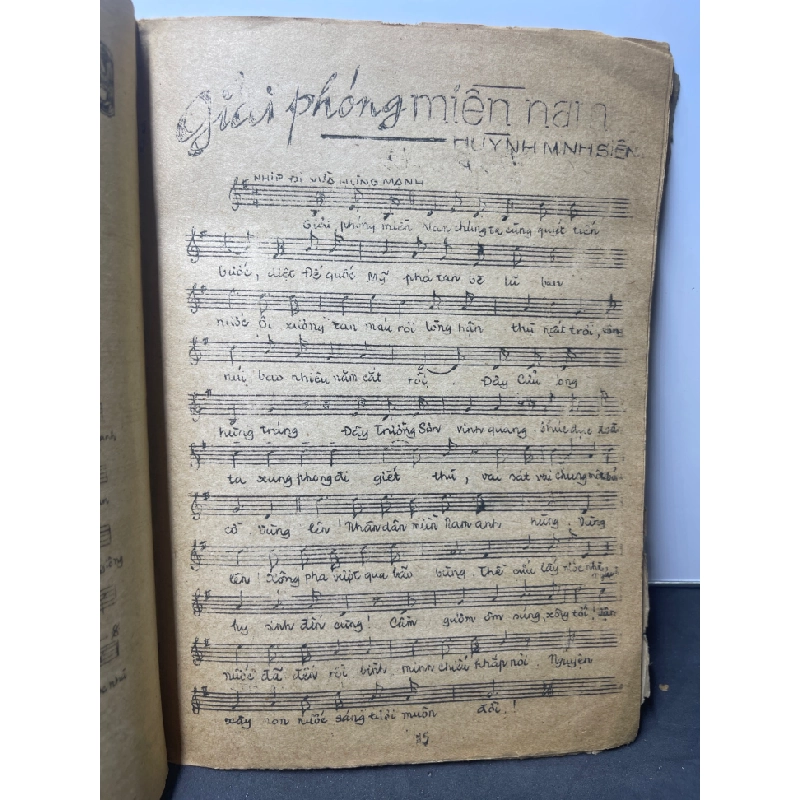 Giải phóng miền nam
HUỲNH MINH SIÊNG
NHỊP ĐI VỪA HÙNG MẠNH
Giải phóng miền Nam chúng ta cùng quyết tiến
bước, diệt Đế quốc Mỹ phá tan bè lũ bán
nước Ôi xương tan máu rơi lòng hận thù ngất trời, sông
núi bao nhiêu năm cắt rời. Đây Cửu long
hùng tráng. Đây Trường Sơn vinh quang thúc dục
ta xung phong đi giết thù, vai sát vai chung một bóng
cờ. Vùng lên! Nhân dân miền Nam anh hùng. Vùng
lên! Xông pha vượt qua bão bùng. Thề cứu lấy nước nhà
hy sinh đến cùng! Cầm gươm ôm súng, xông tới! Vận
nước đã đến rồi bình minh chiếu khắp nơi. Nguyện
xây non nước sáng tươi muôn đời!
75